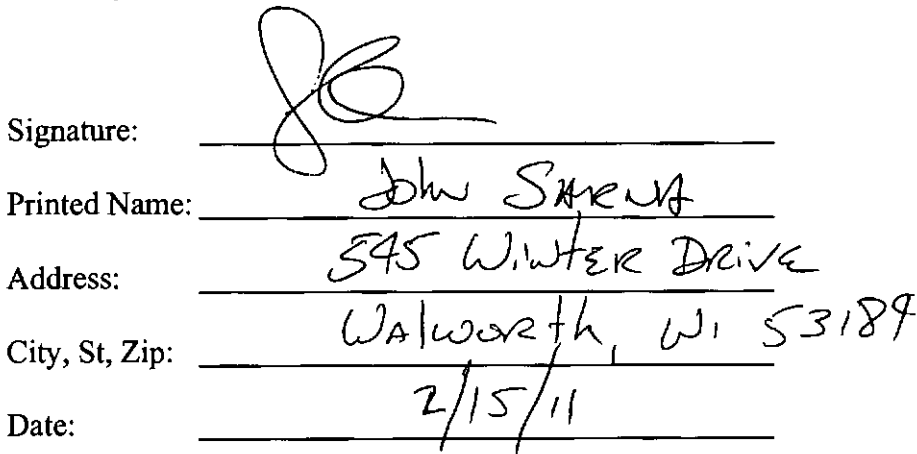 Signature:
Printed Name: John SARNA
Address: 545 Winter Drive
City, St, Zip: Walworth, Wi 53184
Date: 2/15/11